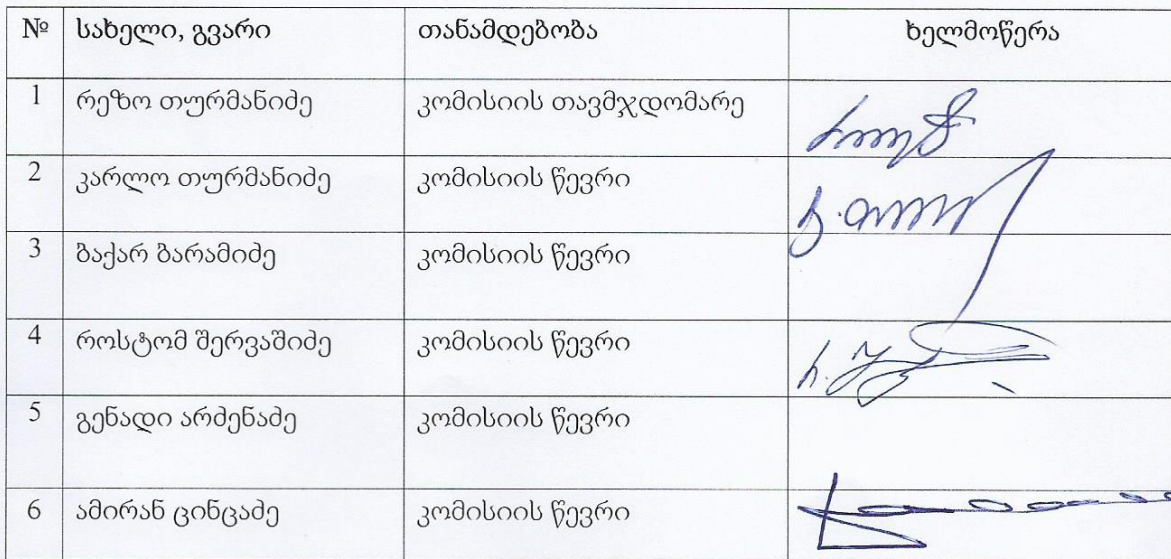 № სახელი, გვარი თანამდებობა ხელმოწერა
1 რეზო თურმანიძე კომისიის თავმჯდომარე
2 კარლო თურმანიძე კომისიის წევრი
3 ბაქარ ბარამიძე კომისიის წევრი
4 როსტომ შერვაშიძე კომისიის წევრი
5 გენადი არძენაძე კომისიის წევრი
6 ამირან ცინცაძე კომისიის წევრი